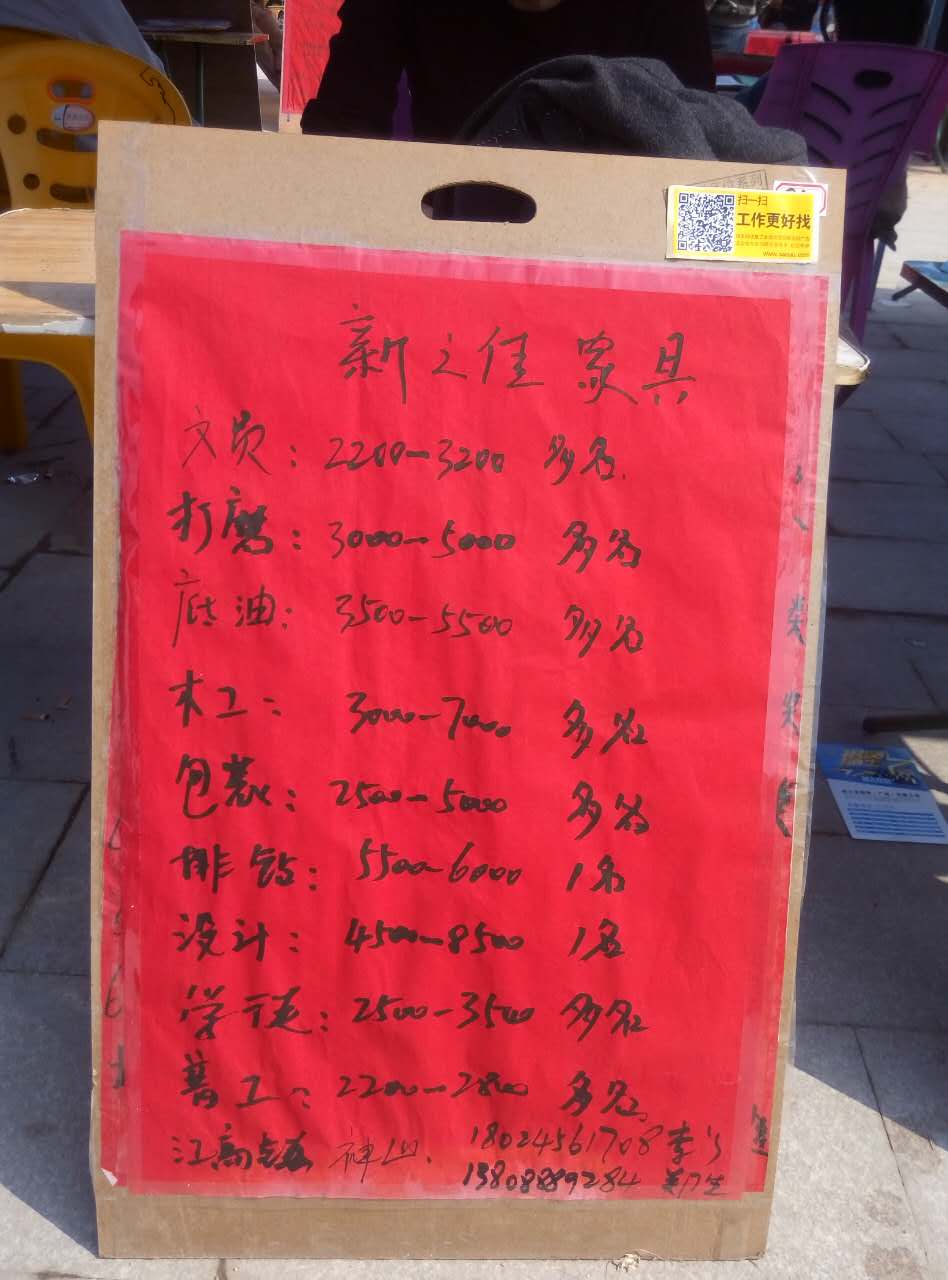 扫一扫
工作更好找
新之佳家具
文员：2200-3200 多名.
打磨：3000-5000 多名
底油：3500-5500 多名
木工：3000-7000 多名
包装：2500-5000 多名
排钻：5500-6000 1名
设计：4500-8500 1名
学徒：2500-3500 多名
普工：2200-2800 多名
江高镇 神山. 18024561708 李
13808889284 郑生